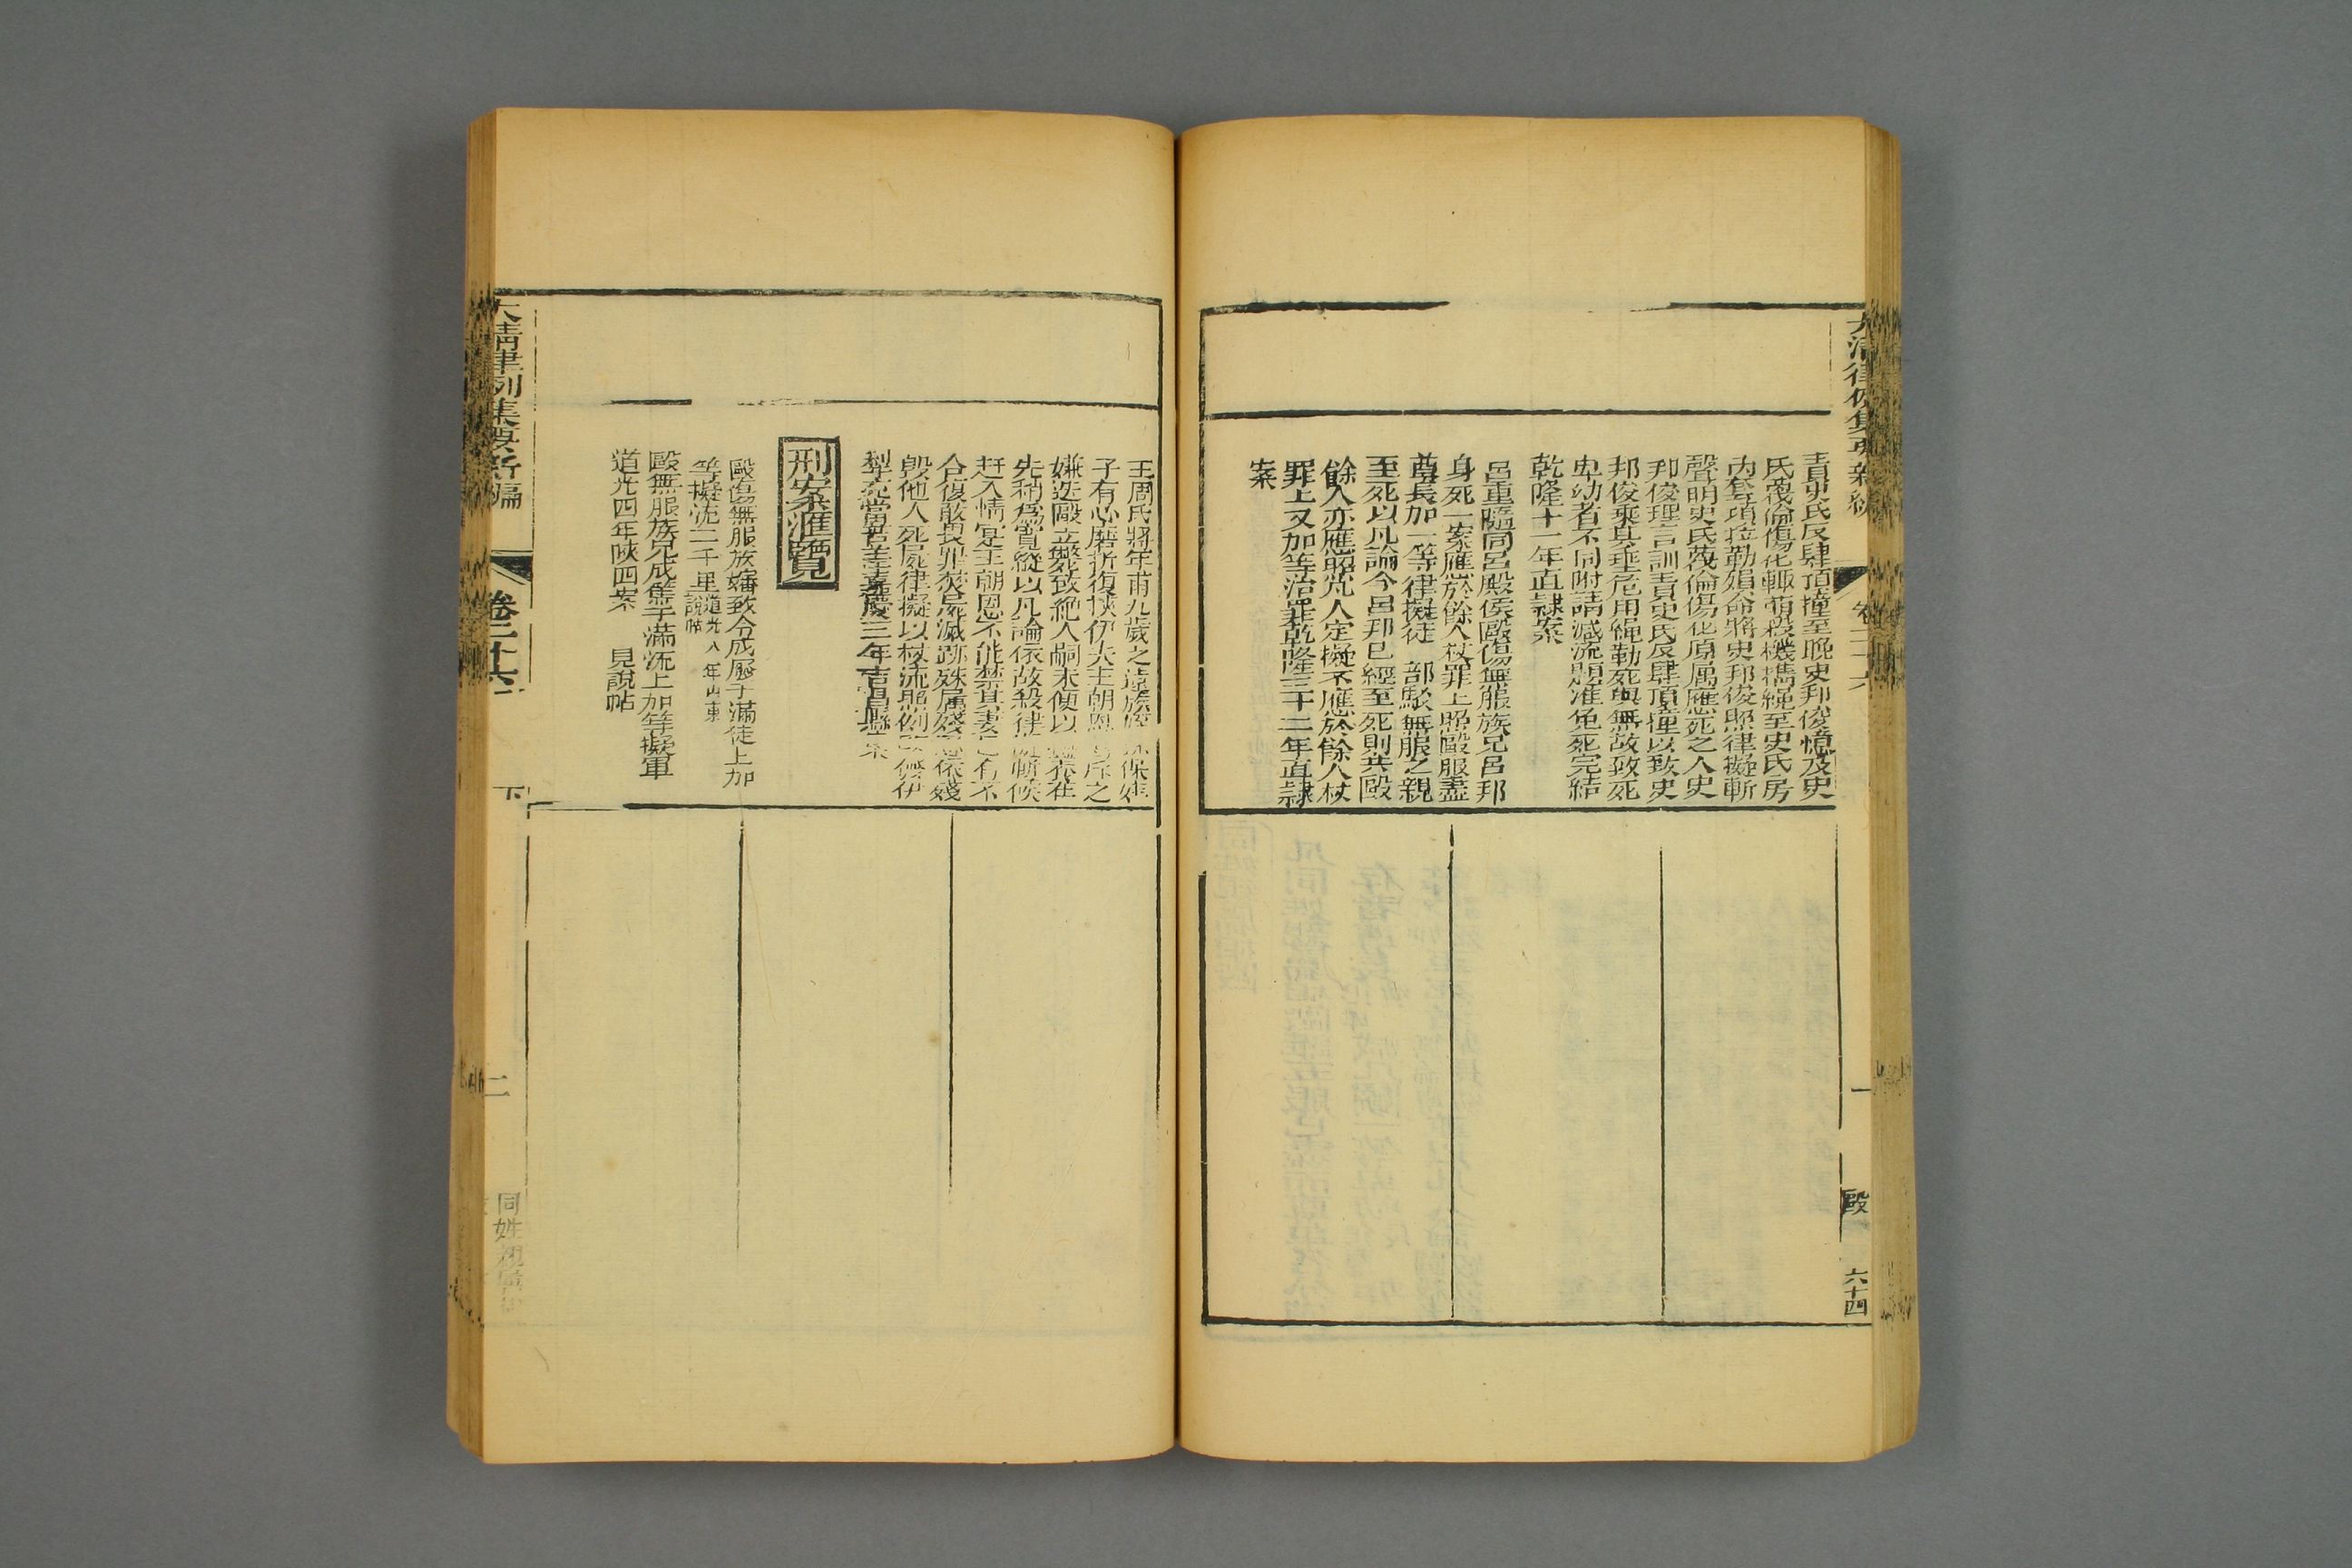 責史氏反肆頂撞至晚史邦俊憶及史
氏蔑倫傷化輒萌殺機攜繩至史氏房
內套項拉勒殞命將史邦俊照律擬斬
聲明史氏蔑倫傷化原属應死之人史
邦俊理言訓責史氏反肆頂撞以致史
邦俊乘其垂危用繩勒死與無故致死
卑幼者不同附請減流題准免死完結
乾隆十一年直隸案
呂重隨同呂殿侯毆傷無服族兄呂邦
身死一案應於餘人杖罪上照毆服盡
尊長加一等律擬徒 部駁無服之親
至死以凡論今呂邦已經至死則共毆
餘人亦應照凡人定擬不應於餘人杖
罪上又加等治罪乾隆三十二年直隸
案
王周氏將年甫九歲之遠族姪
子有心磨折復挾伊夫王朝恩 斥之
嫌迭毆立斃致絕人嗣未便以 在
先稍爲寬縱以凡論依故殺律 斬候
赶入情寔王朝恩不能禁其妻 有不
合復敢畏罪焚屍滅跡殊属殘 依殘
毀他人死屍律擬以杖流照例 伊
犁充當苦差嘉慶三年吉 案
刑案滙覽
毆傷無服族嬸致令成廢于滿徒上加
等擬流二千里說帖道光八年山東
毆無服族兄成篤于滿流上加等擬軍
道光四年陝四案 見說帖
大清律例集要新編
卷二十六
下
二
同姓親屬
大清律例集要新編
卷二十六
一
毆
六十四